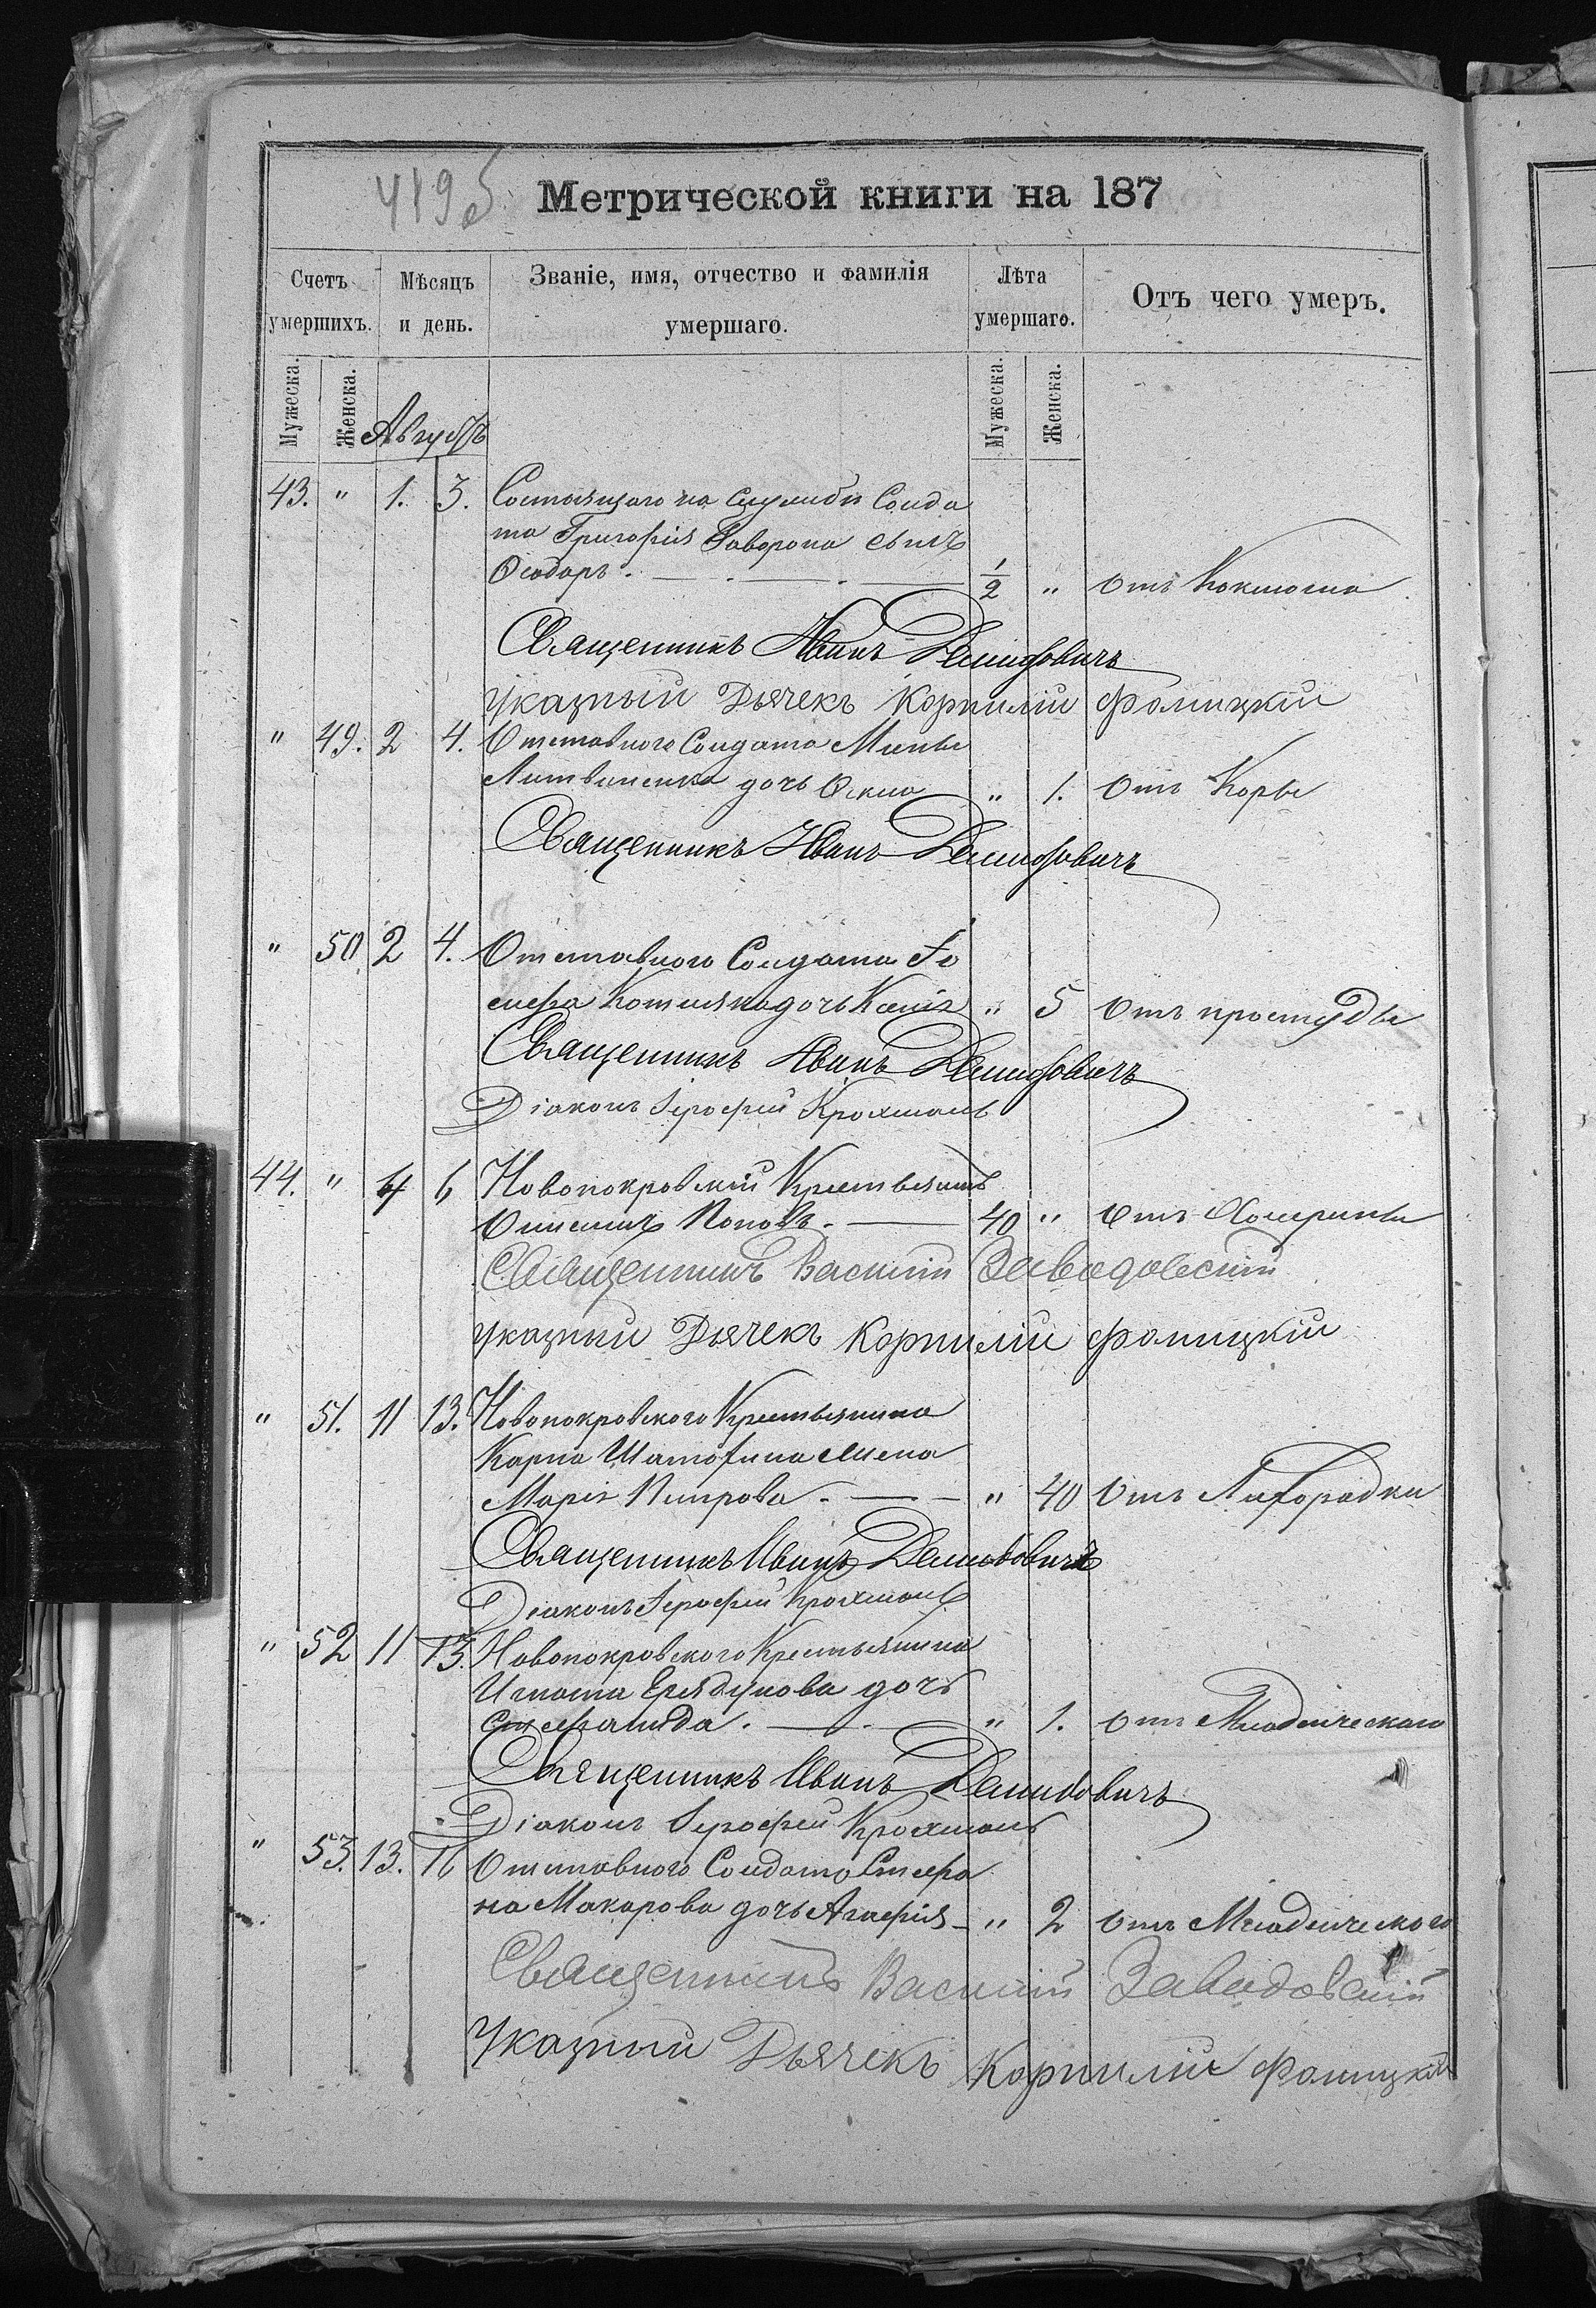 419об
Метрической книги на 187
Счетъ умершихъ. Мѣсяцъ и день. Званіе, имя, отчество и фамилія умершаго. Лѣта умершаго. Отъ чего умеръ.
Мужеска. Женска. Мужеска. Женска.
Августъ
43. " 1. 3. Состоящаго на службѣ Солда
та Григорія Гаворона сынъ
Ѳеодоръ. 1/2 " Отъ Коклюша
Священникъ Иванъ Демидовичъ
Указный Дьячекъ Корнилій Фалицкій
" 49. 2 4. Отставного Солдата Мины
Литвиненка дочь " 1. Отъ Коры
Священникъ Иванъ Демидовичъ
" 50 2 4. Отставного Солдата Іо
сифа дочь Ксенія " 5 Отъ простуды
Священникъ Иванъ Демидовичъ
Діаконъ Ерофей Крохмаль
44. " 4 6 Новопокровскій Крестьянинъ
Онисимъ Поповъ. 40 " Отъ Холерины
Священникъ Василій Заводовскій
Указный Дьячекъ Корнилій Фалицкій
" 51. 11 13. Новопокровского Крестьянина
Карпа Шатохина жена
Марія Петрова. " 40 Отъ Лихорадки
Священникъ Иванъ Демидовичъ
Діаконъ Ерофей Крохмаль
" 52 11 13. Новопокровского Крестьянина
Игната дочь
Стефанида. " 1. Отъ Младенческаго
Священникъ Иванъ Демидовичъ
Діаконъ Ерофей Крохмаль
" 53. 13. 16 Отставного Солдата Стефа
на Макарова дочь Агафія " 2 Отъ Младенческого
Священникъ Василій Заводовскій
Указный Дьячекъ Корнилій Фалицкій